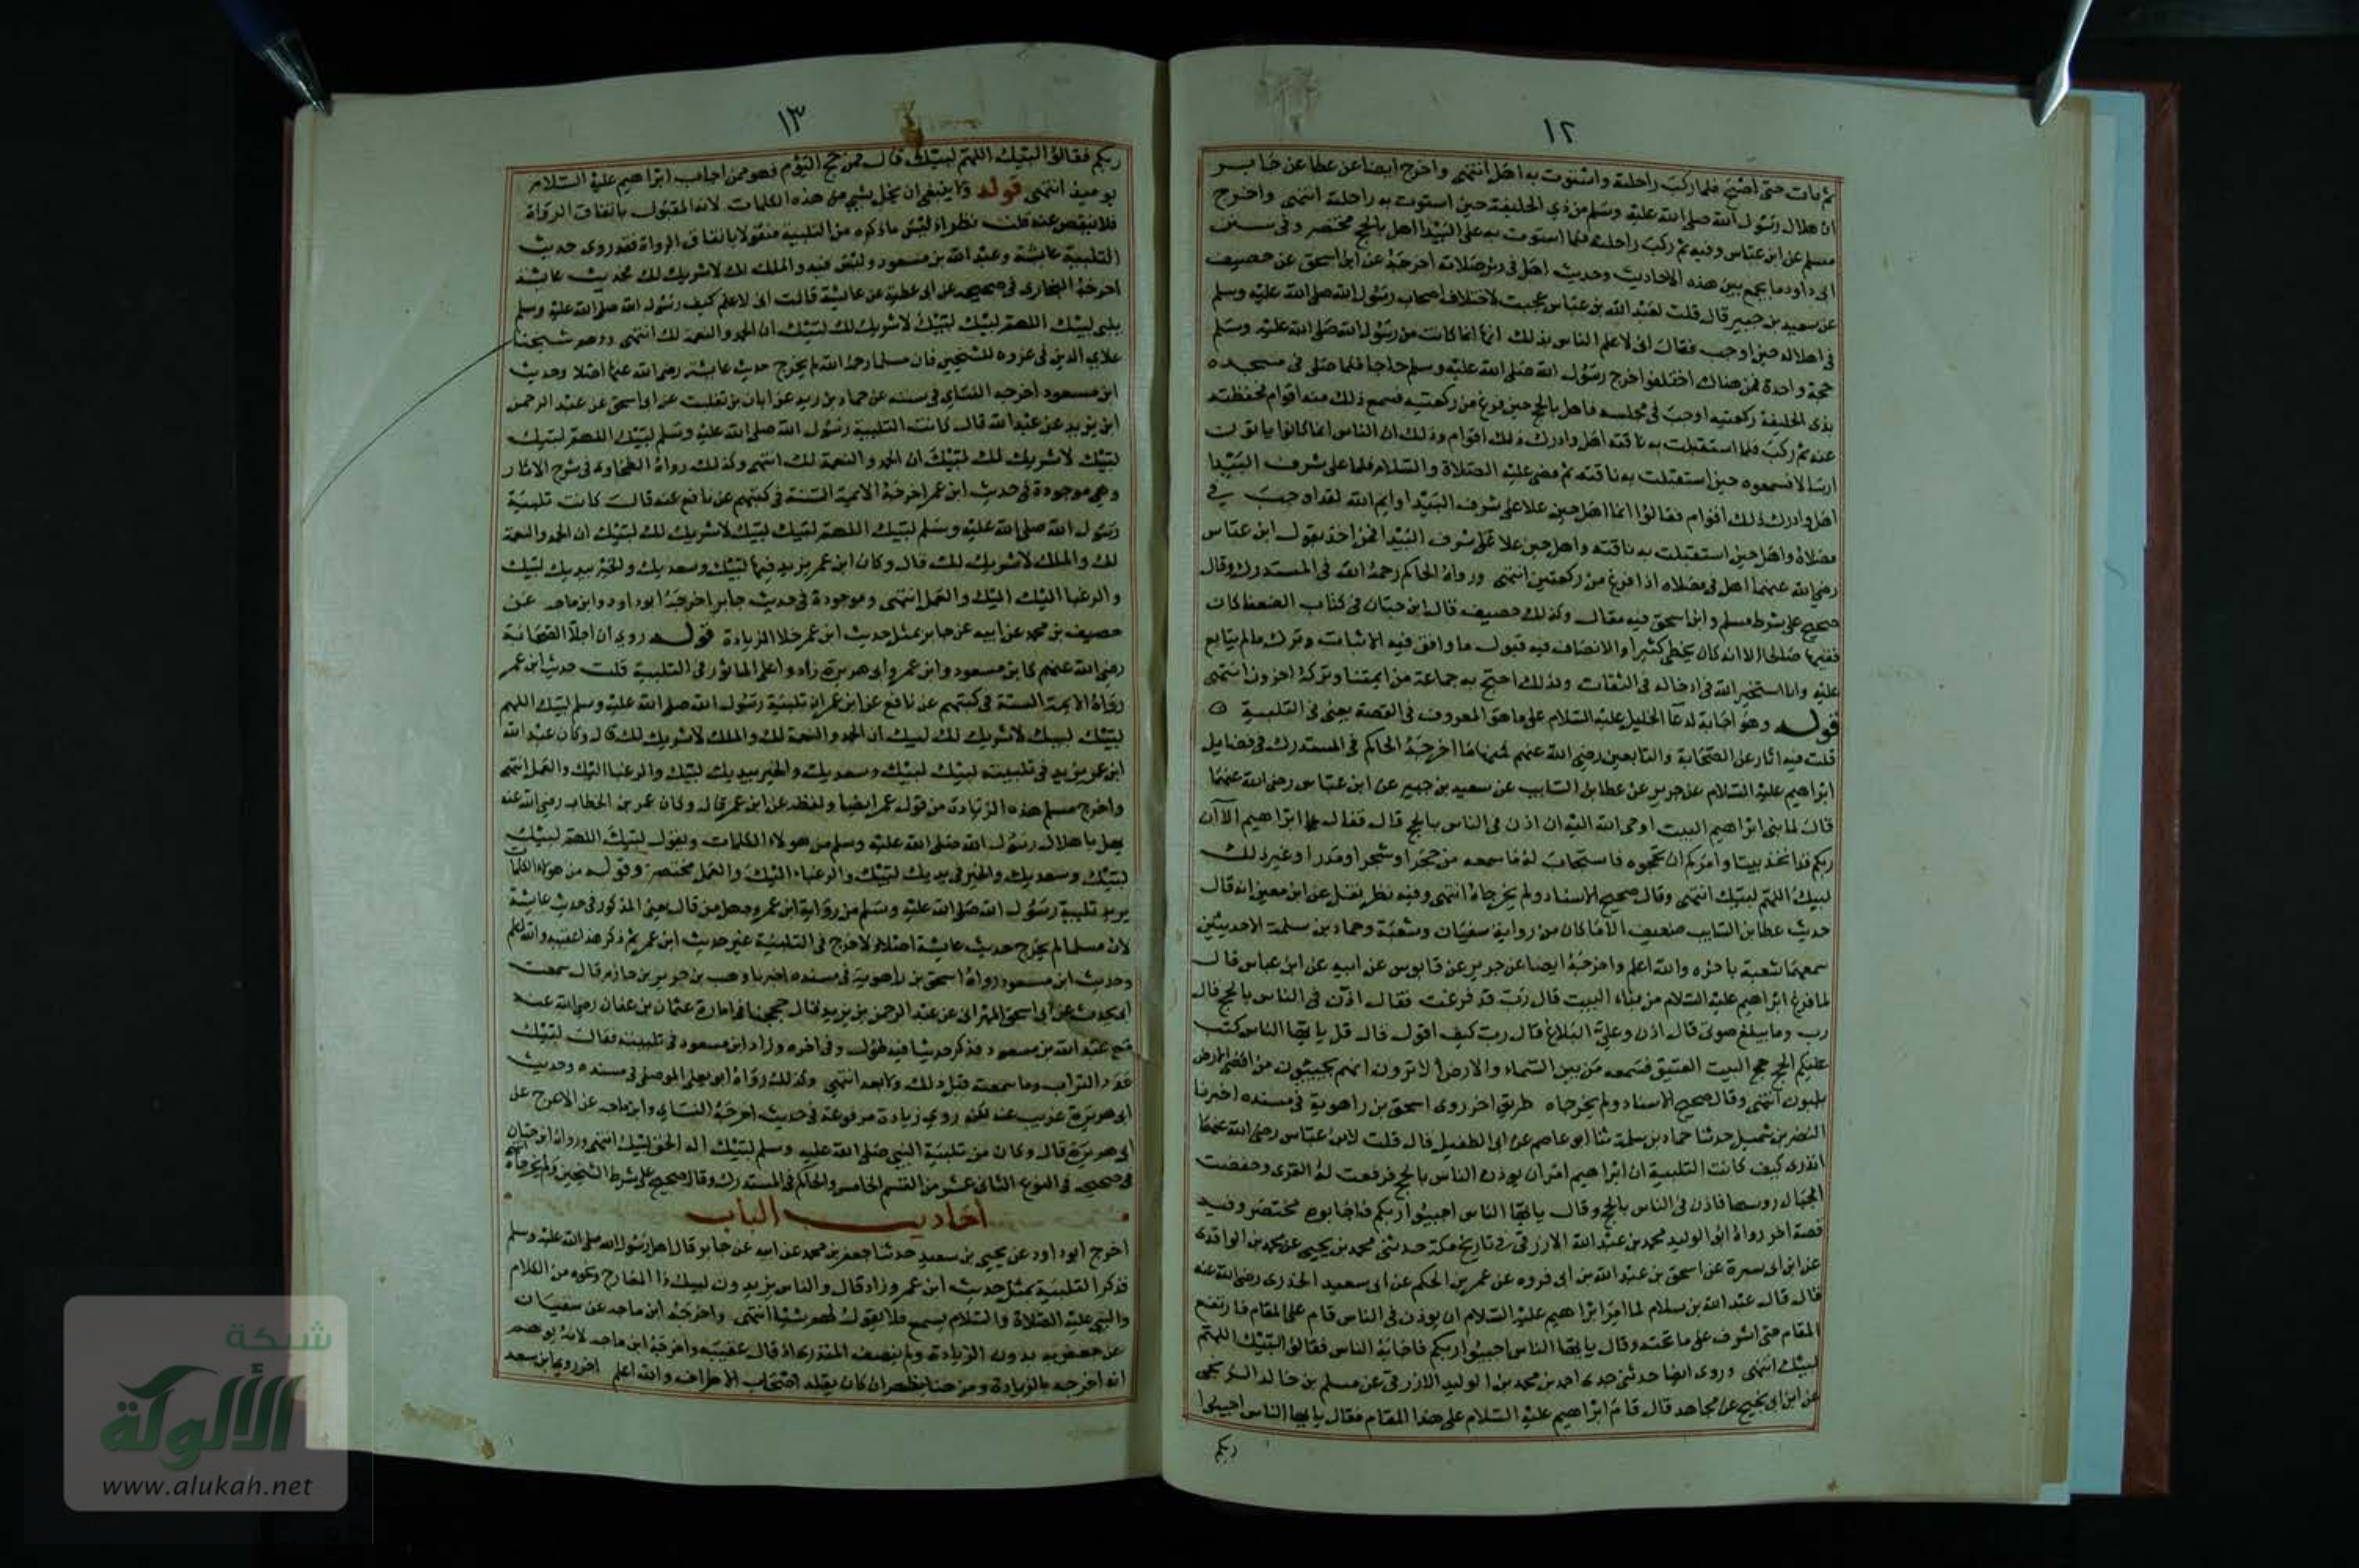 ١٢
ثم بات حتى اصبح فلما ركب راحلته واستوت به اهل انتهى واخرج ايضا عن عطا عن جابر
ان هلال رسول الله صلى الله عليه وسلم من ذي الحليفة حين استوت به راحلته انتهى واخرج
مسلم عن ابن عباس وفيه ثم ركب راحلته فلما استوت به على البيدا اهل بالحج مختصر وفي سنن
ابي داود ما يجمع بين هذه الاحاديث وحديث اهل في دبر صلاته اخرجه عن ابن اسحق عن خصيف
عن سعيد بن جبير قال قلت لعبد الله بن عباس عجبت لاختلاف اصحاب رسول الله صلى الله عليه وسلم
في اهلاله حين اوجب فقال اني لاعلم الناس بذلك انها انما كانت من رسول الله صلى الله عليه وسلم
حجة واحدة فمن هناك اختلفوا خرج رسول الله صلى الله عليه وسلم حاجا فلما صلى في مسجده
بذي الحليفة ركعتيه اوجب في مجلسه فاهل بالحج حين فرغ من ركعتيه فسمع ذلك منه اقوام فحفظته
عنه ثم ركب فلما استقبلت به ناقته اهل وادرك ذلك اقوام وذلك ان الناس انما كانوا ياتون
ارسالا فسمعوه حين استقبلت به ناقته ثم مضى عليه الصلاة والسلام فلما على شرف البيدا
اهل وادرك ذلك اقوام فقالوا انما اهل حين علا على شرف البيدا وايم الله لقد اوجب في
مصلاه واهل حين استقبلت به ناقته واهل حين علا على شرف البيدا فمن اخذ بقول ابن عباس
رضي الله عنهما اهل في مصلاه اذا فرغ من ركعتين انتهى ورواه الحاكم رحمه الله في المستدرك وقال
صحيح على شرط مسلم وابن اسحق فيه مقال وكذلك خصيف قال ابن حبان في كتاب الضعفا كان
فقيها صالحا الا انه كان يخطئ كثيرا والانصاف فيه قبول ما وافق فيه الاثبات وترك ما لم يتابع
عليه وانا استخير الله في ادخاله في الثقات ولذلك احتج به جماعة من ايمتنا وتركه اخرون انتهى
قوله وهو اجابة لدعا الخليل عليه السلام على ما هو المعروف في القصة يعني في التلبية
قلت فيه اثار عن الصحابة والتابعين رضي الله عنهم فمنها ما اخرجه الحاكم في المستدرك في فضايل
ابراهيم عليه السلام عن جرير عن عطا بن السايب عن سعيد بن جبير عن ابن عباس رضي الله عنهما
قال لما بنى ابراهيم البيت اوحى الله اليه ان اذن في الناس بالحج قال فقال ابراهيم الا ان
ربكم قد اتخذ بيتا وامركم ان تحجوه فاستجاب له ما سمعه من حجر او شجر او مدر او غير ذلك
لبيك اللهم لبيك انتهى وقال صحيح الاسناد ولم يخرجاه انتهى وفيه نظر نقل عن ابن معين انه قال
حديث عطا بن السايب ضعيف الا ما كان من رواية سفيان وشعبة وحماد بن سلمة الا حديثين
سمعهما شعبة باخره والله اعلم واخرجه ايضا عن جرير عن قابوس عن ابيه عن ابن عباس قال
لما فرغ ابراهيم عليه السلام من بناء البيت قال رب قد فرغت فقال اذن في الناس بالحج قال
رب وما يبلغ صوتي قال اذن وعلي البلاغ قال رب كيف اقول قال قل يا ايها الناس كتب
عليكم الحج حج البيت العتيق فسمعه من بين السماء والارض الا ترون انهم يجيبون من اقصى الارض
يلبون انتهى وقال صحيح الاسناد ولم يخرجاه طريق اخر روى اسحق بن راهوية في مسنده اخبرنا
النضر بن شميل حدثنا حماد بن سلمة ثنا ابو عاصم عن ابي الطفيل قال قلت لابن عباس رضي الله عنهما
اتدري كيف كانت التلبية ان ابراهيم امر ان يوذن الناس بالحج فرفعت له القرى وخفضت
الجبال روسها فاذن في الناس بالحج وقال يا ايها الناس اجيبوا ربكم فاجابوه مختصر وفيه
قصة اخر رواه ابو الوليد محمد بن عبد الله الازرقي في تاريخ مكة حدثني محمد بن يحيى عن محمد بن الواقدي
عن ابن ابي سبرة عن اسحق بن عبد الله بن ابي فروه عن عمر بن الحكم عن ابي سعيد الخدري رضي الله عنه
قال قال عبد الله بن سلام لما امر ابراهيم عليه السلام ان يوذن في الناس قام على المقام فارتفع
المقام حتى اشرف على ما تحته وقال يا ايها الناس اجيبوا ربكم فاجابه الناس فقالوا لبيك اللهم
لبيك انتهى وروى ايضا حدثني جدي احمد بن محمد بن الوليد الازرقي عن مسلم بن خالد الزنجي
عن ابن ابي نجيح عن مجاهد قال قام ابراهيم عليه السلام على هذا المقام فقال يا ايها الناس اجيبوا
ربكم
١٣
ربكم فقالوا لبيك اللهم لبيك قال فمن حج اليوم فهو ممن اجاب ابراهيم عليه السلام
يوميذ انتهى قوله ولا ينبغي ان يخل بشي من هذه الكلمات لانه المقبول باتفاق الرواة
فلا ينقص عنه قلت نظر اذ ليس ما ذكره من التلبية منقولا باتفاق الرواة فقد روى حديث
التلبية عايشة وعبد الله بن مسعود وليس فيه والملك لك لا شريك لك فحديث عايشة
اخرجه البخاري في صحيحه عن ابي عطية عن عايشة قالت اني لاعلم كيف رسول الله صلى الله عليه وسلم
يلبي لبيك اللهم لبيك لبيك لا شريك لك لبيك ان الحمد والنعمة لك انتهى ووهم شيخنا
علاي الدين في عزوه للشيخين فان مسلما رحمه الله لم يخرج حديث عايشة رضي الله عنها اصلا وحديث
ابن مسعود اخرجه النساي في سننه عن حماد بن زيد عن ابان بن تغلب عن ابي اسحق عن عبد الرحمن
ابن يزيد عن عبد الله قال كانت التلبية رسول الله صلى الله عليه وسلم لبيك اللهم لبيك
لبيك لا شريك لك لبيك ان الحمد والنعمة لك انتهى وكذلك رواه الطحاوي في شرح الاثار
وهي موجودة في حديث ابن عمر اخرجه الايمة الستة في كتبهم عن نافع عنه قال كانت تلبية
رسول الله صلى الله عليه وسلم لبيك اللهم لبيك لبيك لا شريك لك لبيك ان الحمد والنعمة
لك والملك لا شريك لك قال وكان ابن عمر يزيد فيها لبيك وسعديك والخير بيديك لبيك
والرغبا اليك اليك والعمل انتهى وموجودة في حديث جابر اخرجه ابو داود وابن ماجه عن
جعفر بن محمد عن ابيه عن جابر بمثل حديث ابن عمر خلا الزيادة قوله روي ان اجلا الصحابة
رضي الله عنهم كابن مسعود وابن عمر وابي هريرة زادوا على الماثور في التلبية قلت حديث ابن عمر
رواه الايمة الستة في كتبهم عن نافع عن ابن عمر ان تلبية رسول الله صلى الله عليه وسلم لبيك اللهم
لبيك لبيك لا شريك لك لبيك ان الحمد والنعمة لك والملك لا شريك لك قال وكان عبد الله
ابن عمر يزيد في تلبيته لبيك لبيك وسعديك والخير بيديك لبيك والرغبا اليك والعمل انتهى
واخرج مسلم هذه الزيادة من قول عمر ايضا ولفظه عن ابن عمر قال وكان عمر بن الخطاب رضي الله عنه
يهل باهلال رسول الله صلى الله عليه وسلم من هولاء الكلمات ويقول لبيك اللهم لبيك
لبيك وسعديك والخير في يديك لبيك والرغباء اليك والعمل مختصر وقوله من هولاء الكلمات
يريد تلبية رسول الله صلى الله عليه وسلم من رواية ابن عمر وجهل من قال يعني المذكور في حديث عايشة
لان مسلما لم يخرج حديث عايشة اصلا ولا خرج في التلبية غير حديث ابن عمر ثم ذكر هذا عقيبه والله اعلم
وحديث ابن مسعود رواه اسحق بن راهوية في مسنده اخبرنا وهب بن جرير بن حازم قال سمعت
ابي يحدث عن ابي اسحق الهمداني عن عبد الرحمن بن يزيد قال حججنا في امارة عثمان بن عفان رضي الله عنه
مع عبد الله بن مسعود فذكر حديثا فيه طول وفي اخره وزاد ابن مسعود في تلبيته فقال لبيك
عدد التراب وما سمعته قبل ذلك ولا بعد انتهى وكذلك رواه ابو يعلى الموصلي في مسنده وحديث
ابي هريرة غريب عنه لكنه روي زيادة مرفوعة في حديث اخرجه النساي وابن ماجه عن الاعرج عن
ابي هريرة قال وكان من تلبية النبي صلى الله عليه وسلم لبيك اله الحق لبيك انتهى ورواه ابن حبان
في صحيحه في النوع الثاني عشر من القسم الخامس والحاكم في المستدرك وقال صحيح على شرط الشيخين ولم يخرجاه
احاديث الباب
اخرج ابو داود عن يحيى بن سعيد حدثنا جعفر بن محمد عن ابيه عن جابر قال اهل رسول الله صلى الله عليه وسلم
فذكر التلبية بمثل حديث ابن عمر وزاد قال والناس يزيدون لبيك ذا المعارج ونحوه من الكلام
والنبي عليه الصلاة والسلام يسمع فلا يقول لهم شيئا انتهى واخرجه ابن ماجه عن سفيان
عن جعفر به بدون الزيادة ولم ينصف المنذري اذ قال عقيبه واخرجه ابن ماجه لانه يوهم
انه اخرجه بالزيادة ومن هنا يظهر ان كان يقلد اصحاب الاطراف والله اعلم اخر روى ابن سعد
شبكة
الألوكة
www.alukah.net